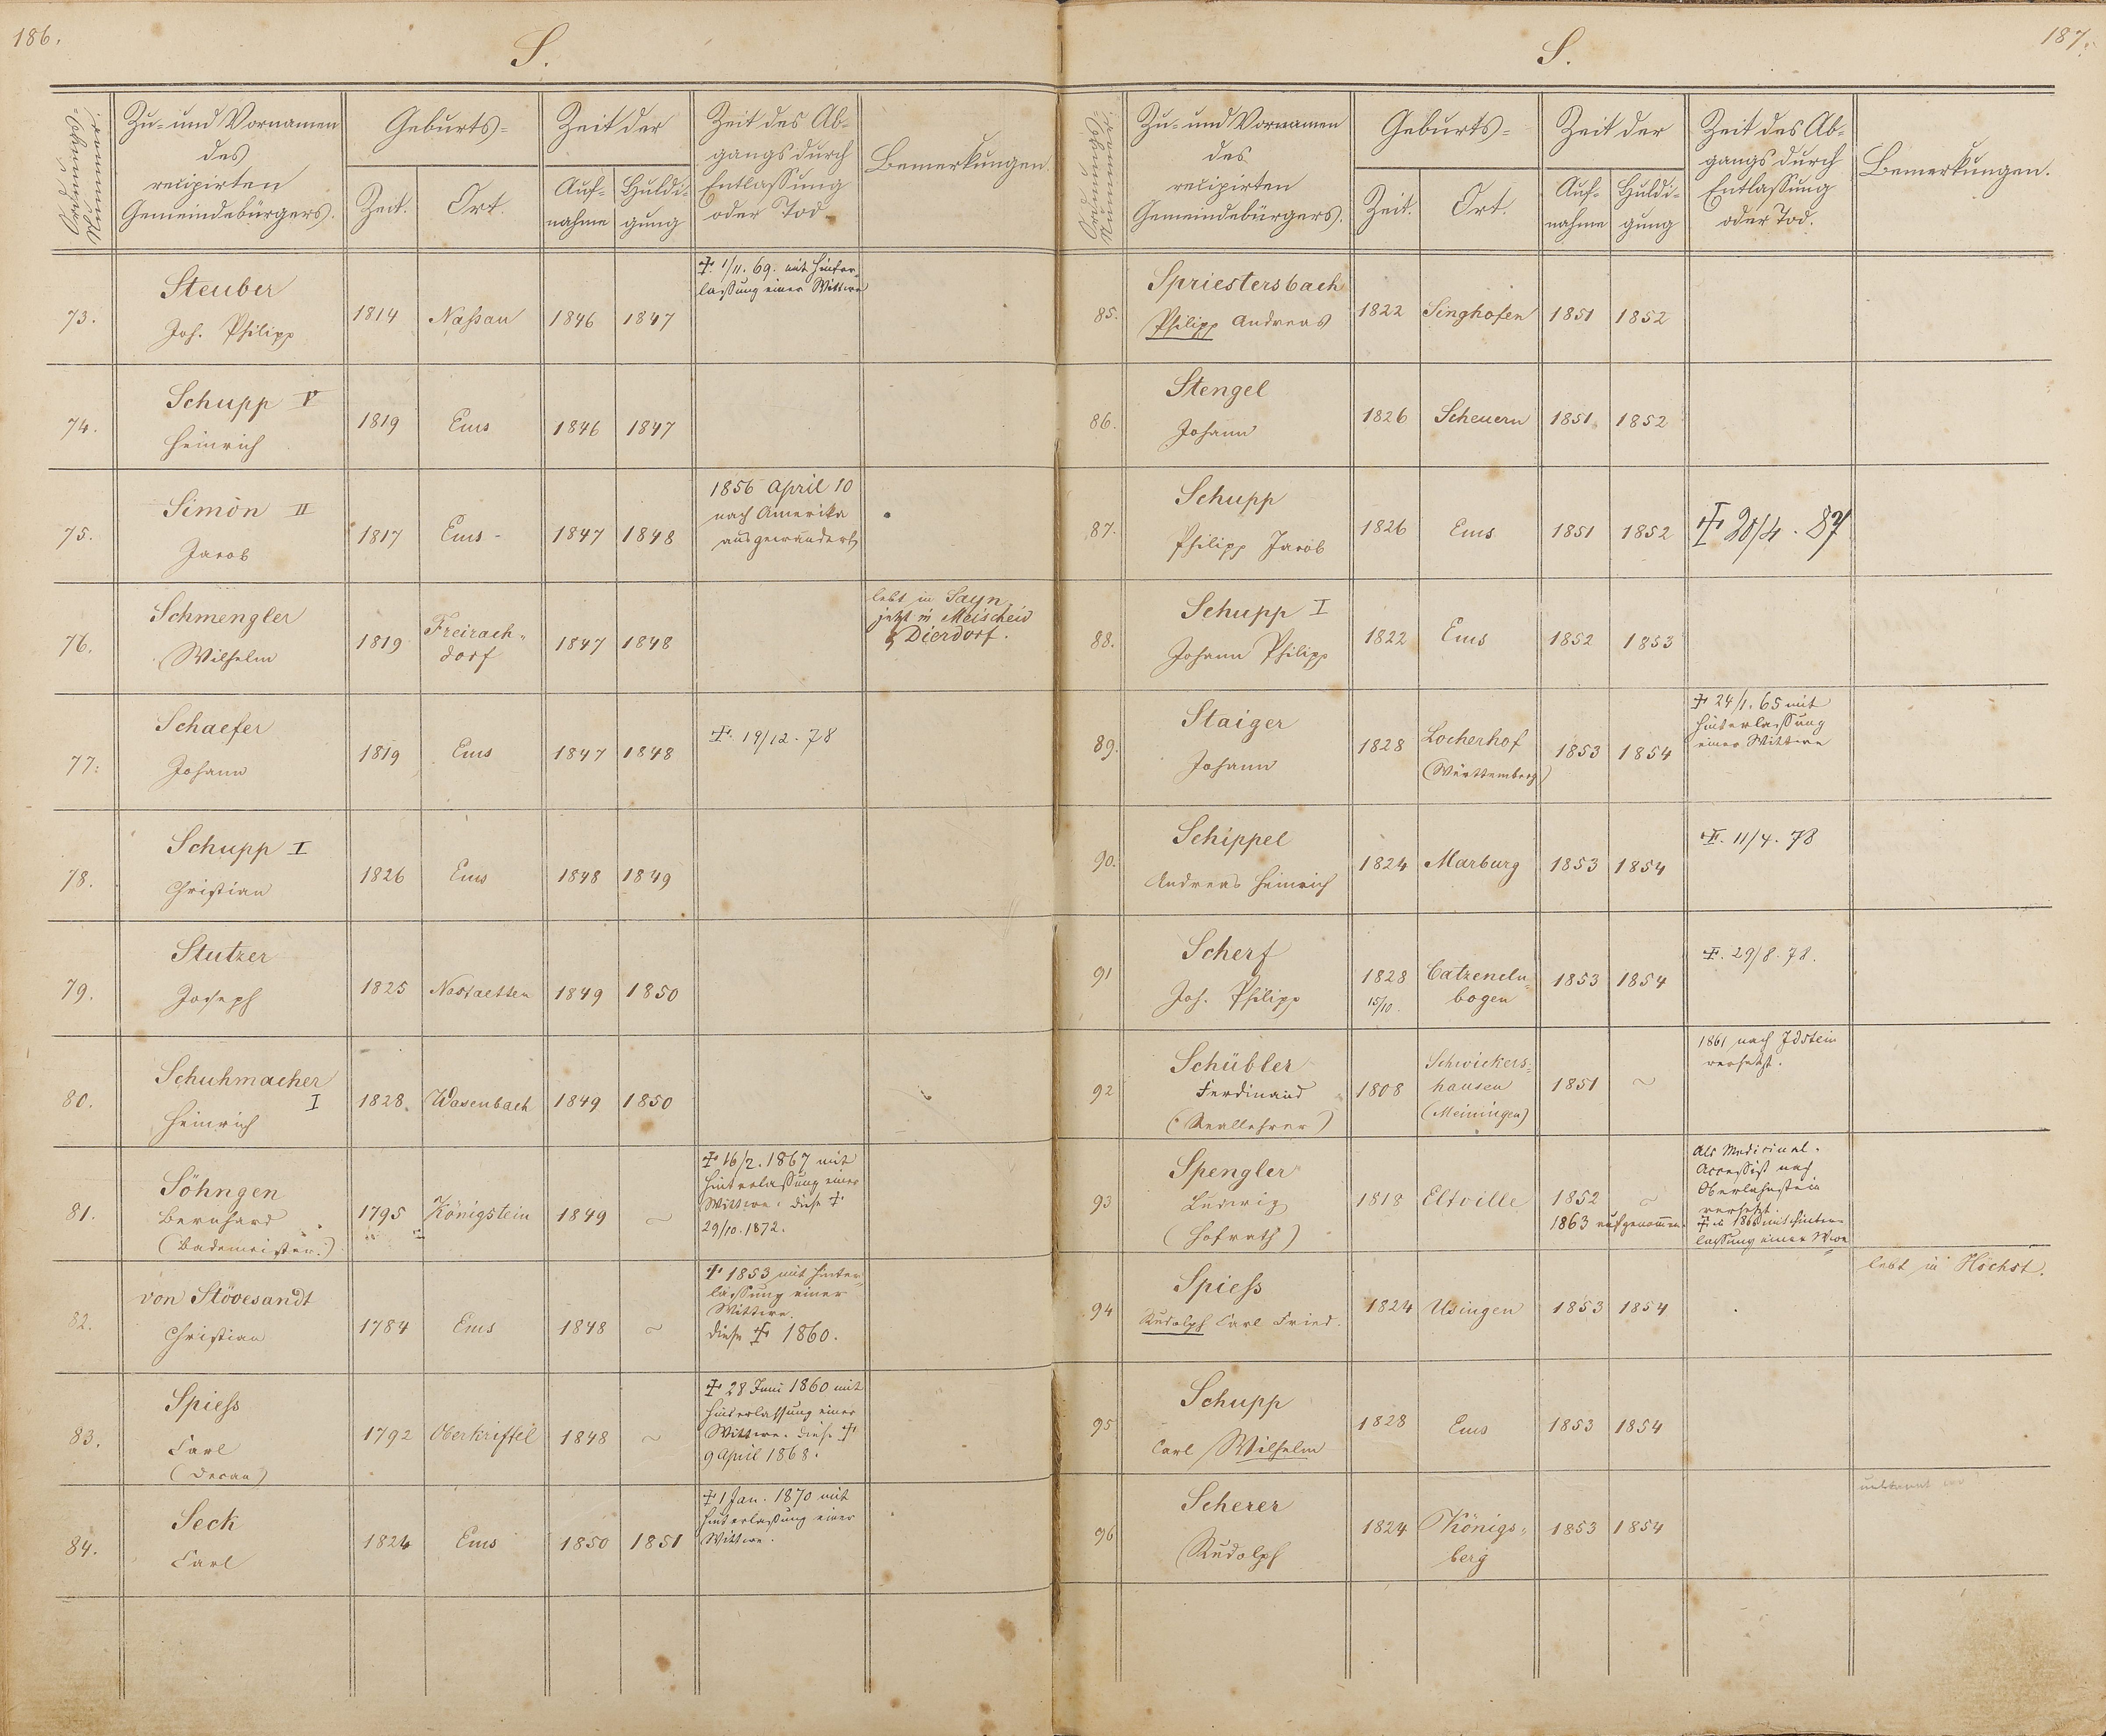 186.
S.
Ordnungs-
Nummer.
Zu- und Vornamen
des
recipirten
Gemeindebürgers.
Geburts-
Zeit.
Ort.
Zeit der
Auf-
nahme
Huldi-
gung
Zeit des Ab-
gangs durch
Entlassung
oder Tod.
Bemerkungen
73.
Steuber
Joh. Philipp
1814
Naßau
1846
1847
† 1/11. 69. mit Hinter-
lassung einer Wittwe
74.
Schupp V
Heinrich
1819
Ems
1846
1847
75.
Simon II
Jacob
1817
Ems
1847
1848
1856 April 10
nach Amerika
ausgewandert
76.
Schmengler
Wilhelm
1819
Freirach-
dorf
1847
1848
lebt in Sayn
jetzt in Meischeid
Dierdorf.
77.
Schaefer
Johann
1819
Ems
1847
1848
†. 19/12. 78
78.
Schupp I
Christian
1826
Ems
1848
1849
79.
Stutzer
Joseph
1825
Nastaetten
1849
1850
80.
Schuhmacher
I
Heinrich
1828.
Wasenbach
1849
1850
81.
Söhngen
Bernhard
(Bademeister.)
1795
Königstein
1849
~
† 16/2. 1867 mit
Hinterlassung einer
Wittwe. diese †
29/10. 1872.
82.
von Stövesandt
Christian
1784
Ems
1848
~
† 1853 mit Hinter-
lassung einer
Wittwe.
diese † 1860.
83.
Spiess
Carl
(Decan)
1792
Oberkriftel
1848
~
† 28 Juni 1860 mit
Hinterlassung einer
Wittwe. diese †
9 April 1868.
84.
Seck
Carl
1824
Ems
1850
1851
† 1 Jan. 1870 mit
Hinterlaßung einer
Wittwe.
187.
S.
Ordnungs-
Nummer.
Zu- und Vornamen
des
recipirten
Gemeindebürgers.
Geburts-
Zeit.
Ort.
Zeit der
Auf-
nahme
Huldi-
gung
Zeit des Ab-
gangs durch
Entlassung
oder Tod.
Bemerkungen.
85.
Spriestersbach
Philipp Andreas
1822
Singhofen
1851
1852
86.
Stengel
Johann
1826
Scheuern
1851
1852
87.
Schupp
Philipp Jacob
1826
Ems
1851
1852
† 20/4. 87
88.
Schupp I
Johann Philipp
1822
Ems
1852
1853
89.
Staiger
Johann
1828
Locherhof
(Württemberg)
1853
1854
† 24/1. 65 mit
Hinterlassung
einer Wittwe
90.
Schippel
Andreas Heinrich
1824
Marburg
1853
1854
†. 11/4. 78
91
Scherf
Joh. Philipp
1828
15/10.
Catzeneln-
bogen
1853
1854
†. 29/8. 78.
92
Schübler
Ferdinand
(Reallehrer)
1808
Schwickers-
hausen
(Meiningen)
1851
~
1861 nach Idstein
versetzt.
93
Spengler
Ludwig
(Hofrath)
1818
Eltville
1852
~
1863 aufgenommen.
Als Medicinal-
Accessist nach
Oberlahnstein
versetzt.
† 1866 mit Hinter-
lassung einer Wwe
94
Spiess
Rudolph Carl Fried.
1824
Usingen
1853
1854
lebt in Höchst.
95
Schupp
Carl Wilhelm
1828
Ems
1853
1854
96
Scherer
Rudolph
1824
Königs-
berg
1853
1854